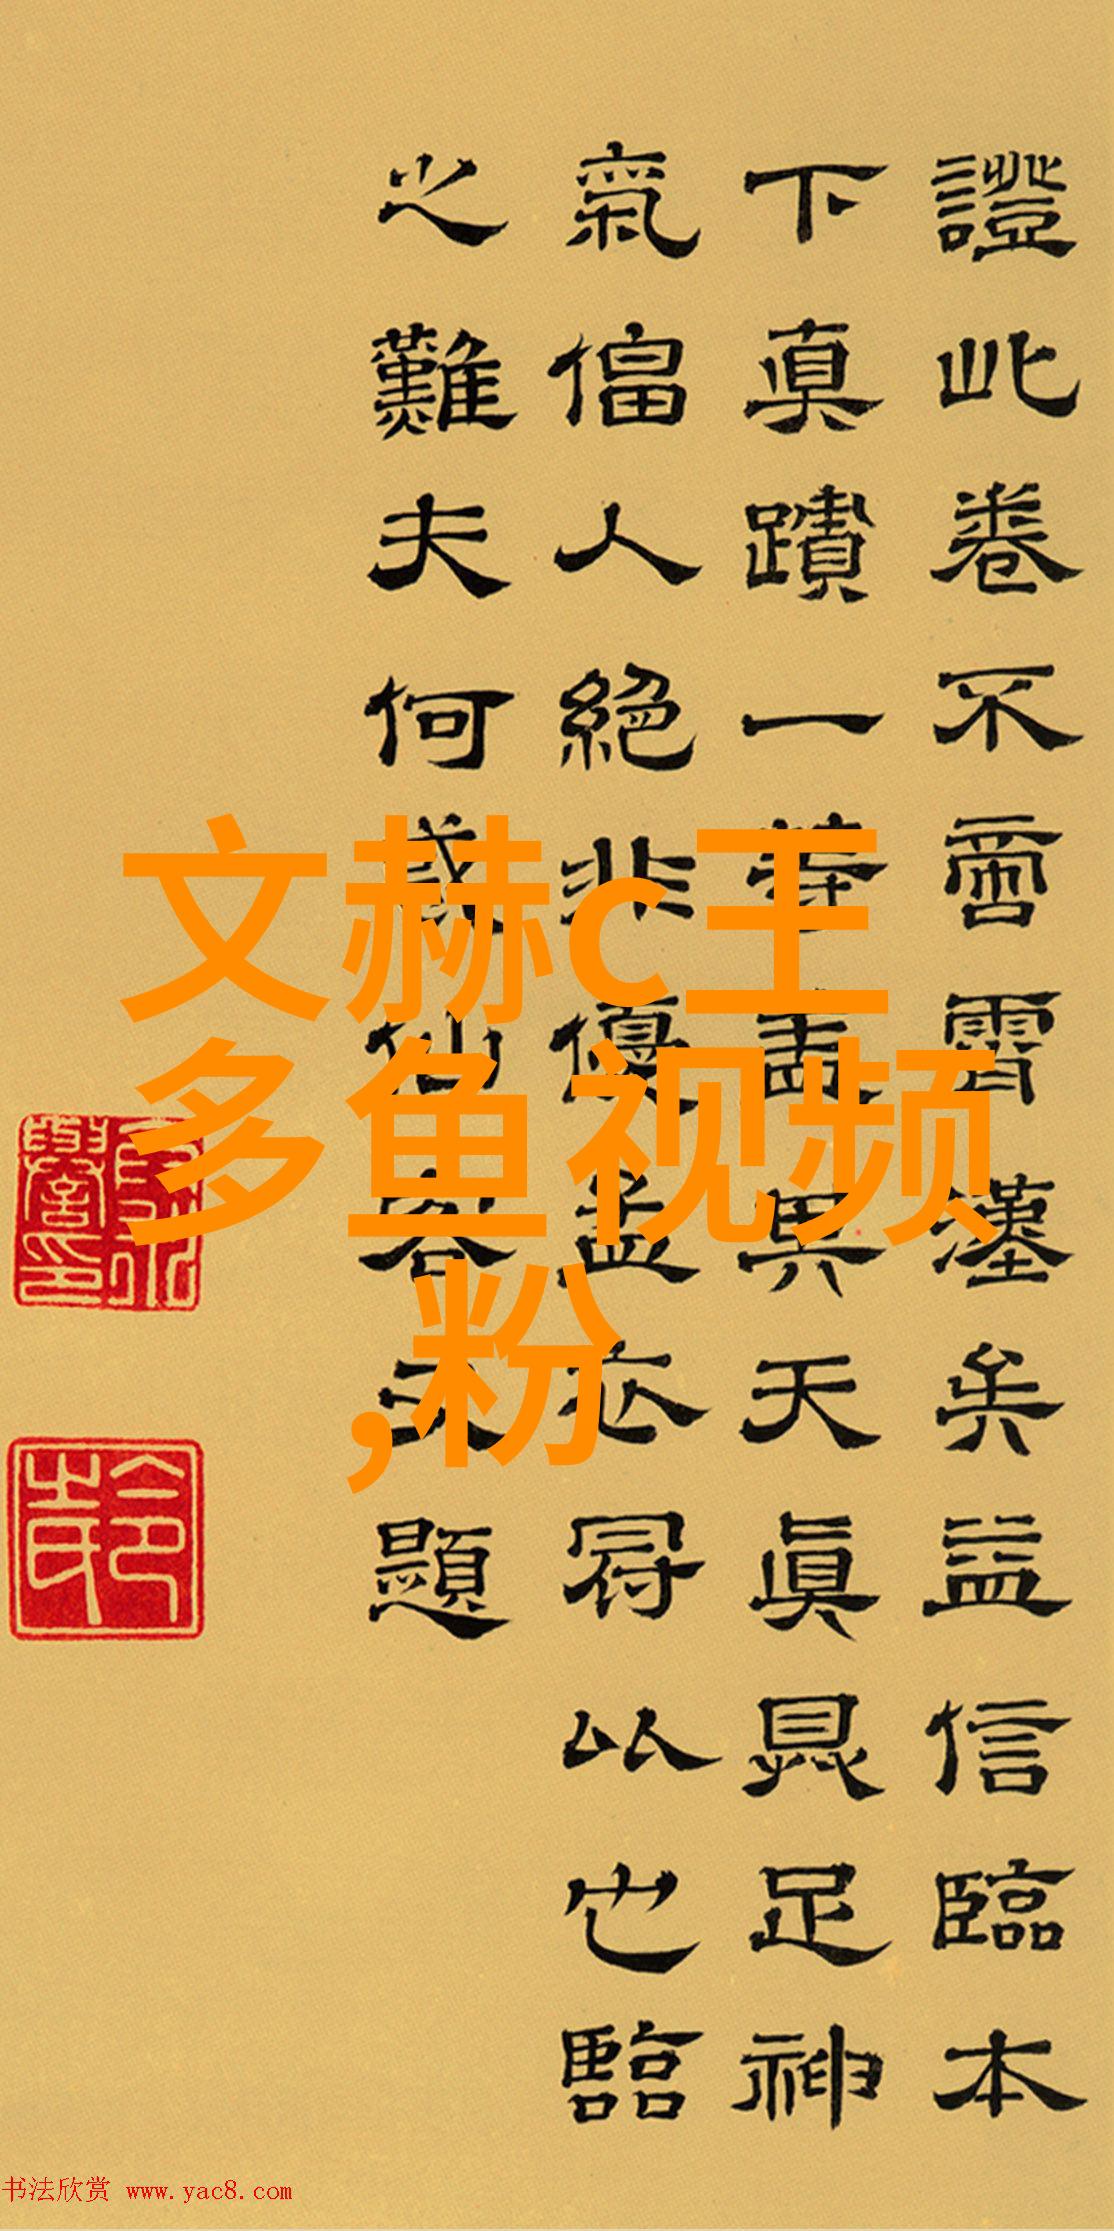 證此卷不啻霄漢矣益信臨本
下真蹟一等耳異天真具足神
氣偪人絕非優孟衣冠以也臨
之難夫何或仙客又題
文赫c王
多鱼视频
,粉
书法欣赏 www.yac8.com